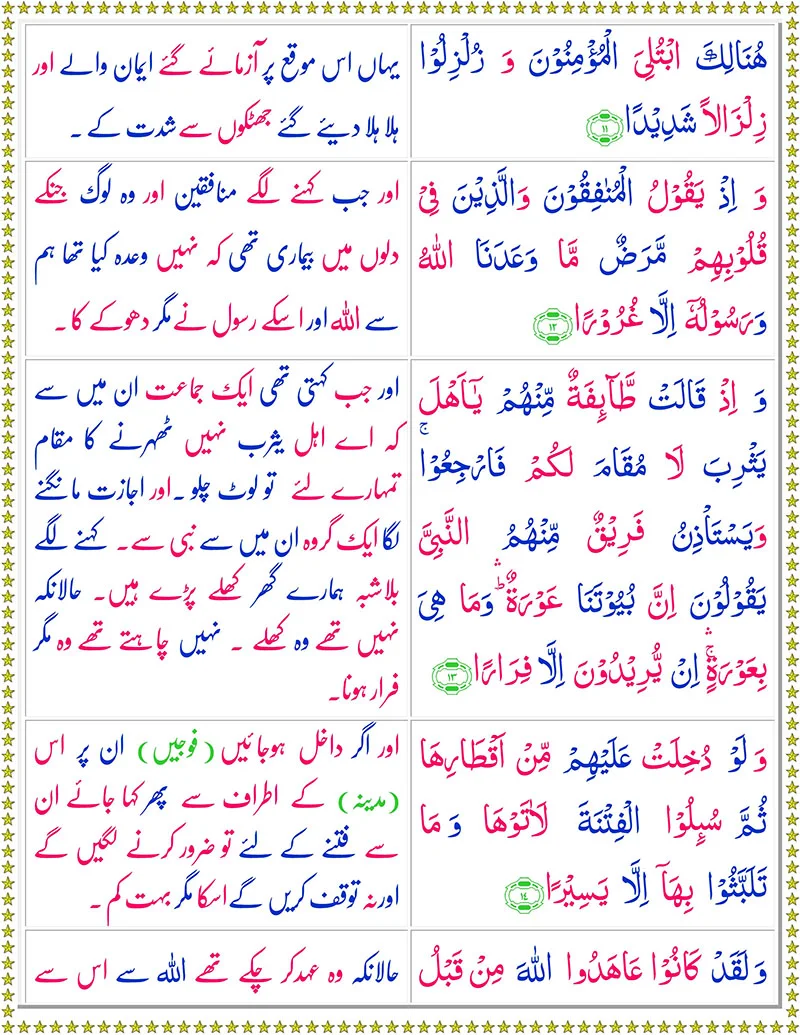 هُنَالِكَ ابْتُلِيَ الْمُؤْمِنُوْنَ وَ زُلْزِلُوْا
زِلْزَالاً شَدِيْدًا ﴿١١﴾
یہاں اس موقع پر آزمائے گئے ایمان والے اور
ہلا ہلا دیئے گئے جھٹکوں سے شدت کے ۔
وَ اِذْ يَقُوْلُ الْمُنٰفِقُوْنَ وَالَّذِيْنَ فِىْ
قُلُوْبِهِمْ مَّرَضٌ مَّا وَعَدَنَا اللهُ
وَرَسُوْلُهٗٓ اِلَّا غُرُوْرًا ﴿١٢﴾
اور جب کہنے لگے منافقین اور وہ لوگ جنکے
دلوں میں بیماری تھی کہ نہیں وعدہ کیا تھا ہم
سے اللہ اور اسکے رسول نے مگر دھوکے کا ۔
وَ اِذْ قَالَتْ طَّآئِفَةٌ مِّنْهُمْ يٰٓاَهْلَ
يَثْرِبَ لَا مُقَامَ لَكُمْ فَارْجِعُوْا ۚ
وَيَسْتَاْذِنُ فَرِيْقٌ مِّنْهُمُ النَّبِىَّ
يَقُوْلُوْنَ اِنَّ بُيُوْتَنَا عَوْرَةٌ ۛؕ وَمَا هِىَ
بِعَوْرَةٍ ۛۚ اِنْ يُّرِيْدُوْنَ اِلَّا فِرَارًا ﴿١٣﴾
اور جب کہتی تھی ایک جماعت ان میں سے
کہ اے اہل یثرب نہیں ٹھہرنے کا مقام
تمہارے لئے تو لوٹ چلو ۔ اور اجازت مانگنے
لگا ایک گروہ ان میں سے نبی سے ۔ کہنے لگے
بلاشبہ ہمارے گھر کھلے پڑے ہیں۔ حالانکہ
نہیں تھے وہ کھلے ۔ نہیں چاہتے تھے وہ مگر
فرار ہونا۔
وَ لَوْ دُخِلَتْ عَلَيْهِمْ مِّنْ اَقْطَارِهَا
ثُمَّ سُىِٕلُوا الْفِتْنَةَ لَاٰتَوْهَا وَ مَا
تَلَبَّثُوْا بِهَآ اِلَّا يَسِيْرًا ﴿١٤﴾
اور اگر داخل ہوجائیں (فوجیں) ان پر اس
(مدینہ) کے اطراف سے پھر کہا جائے ان
سے فتنے کے لئے تو ضرور کرنے لگیں گے
اور نہ توقف کریں گے اسکا مگر بہت کم ۔
وَ لَقَدْ كَانُوْا عَاهَدُوا اللهَ مِنْ قَبْلُ
حالانکہ وہ عہد کر چکے تھے اللہ سے اس سے